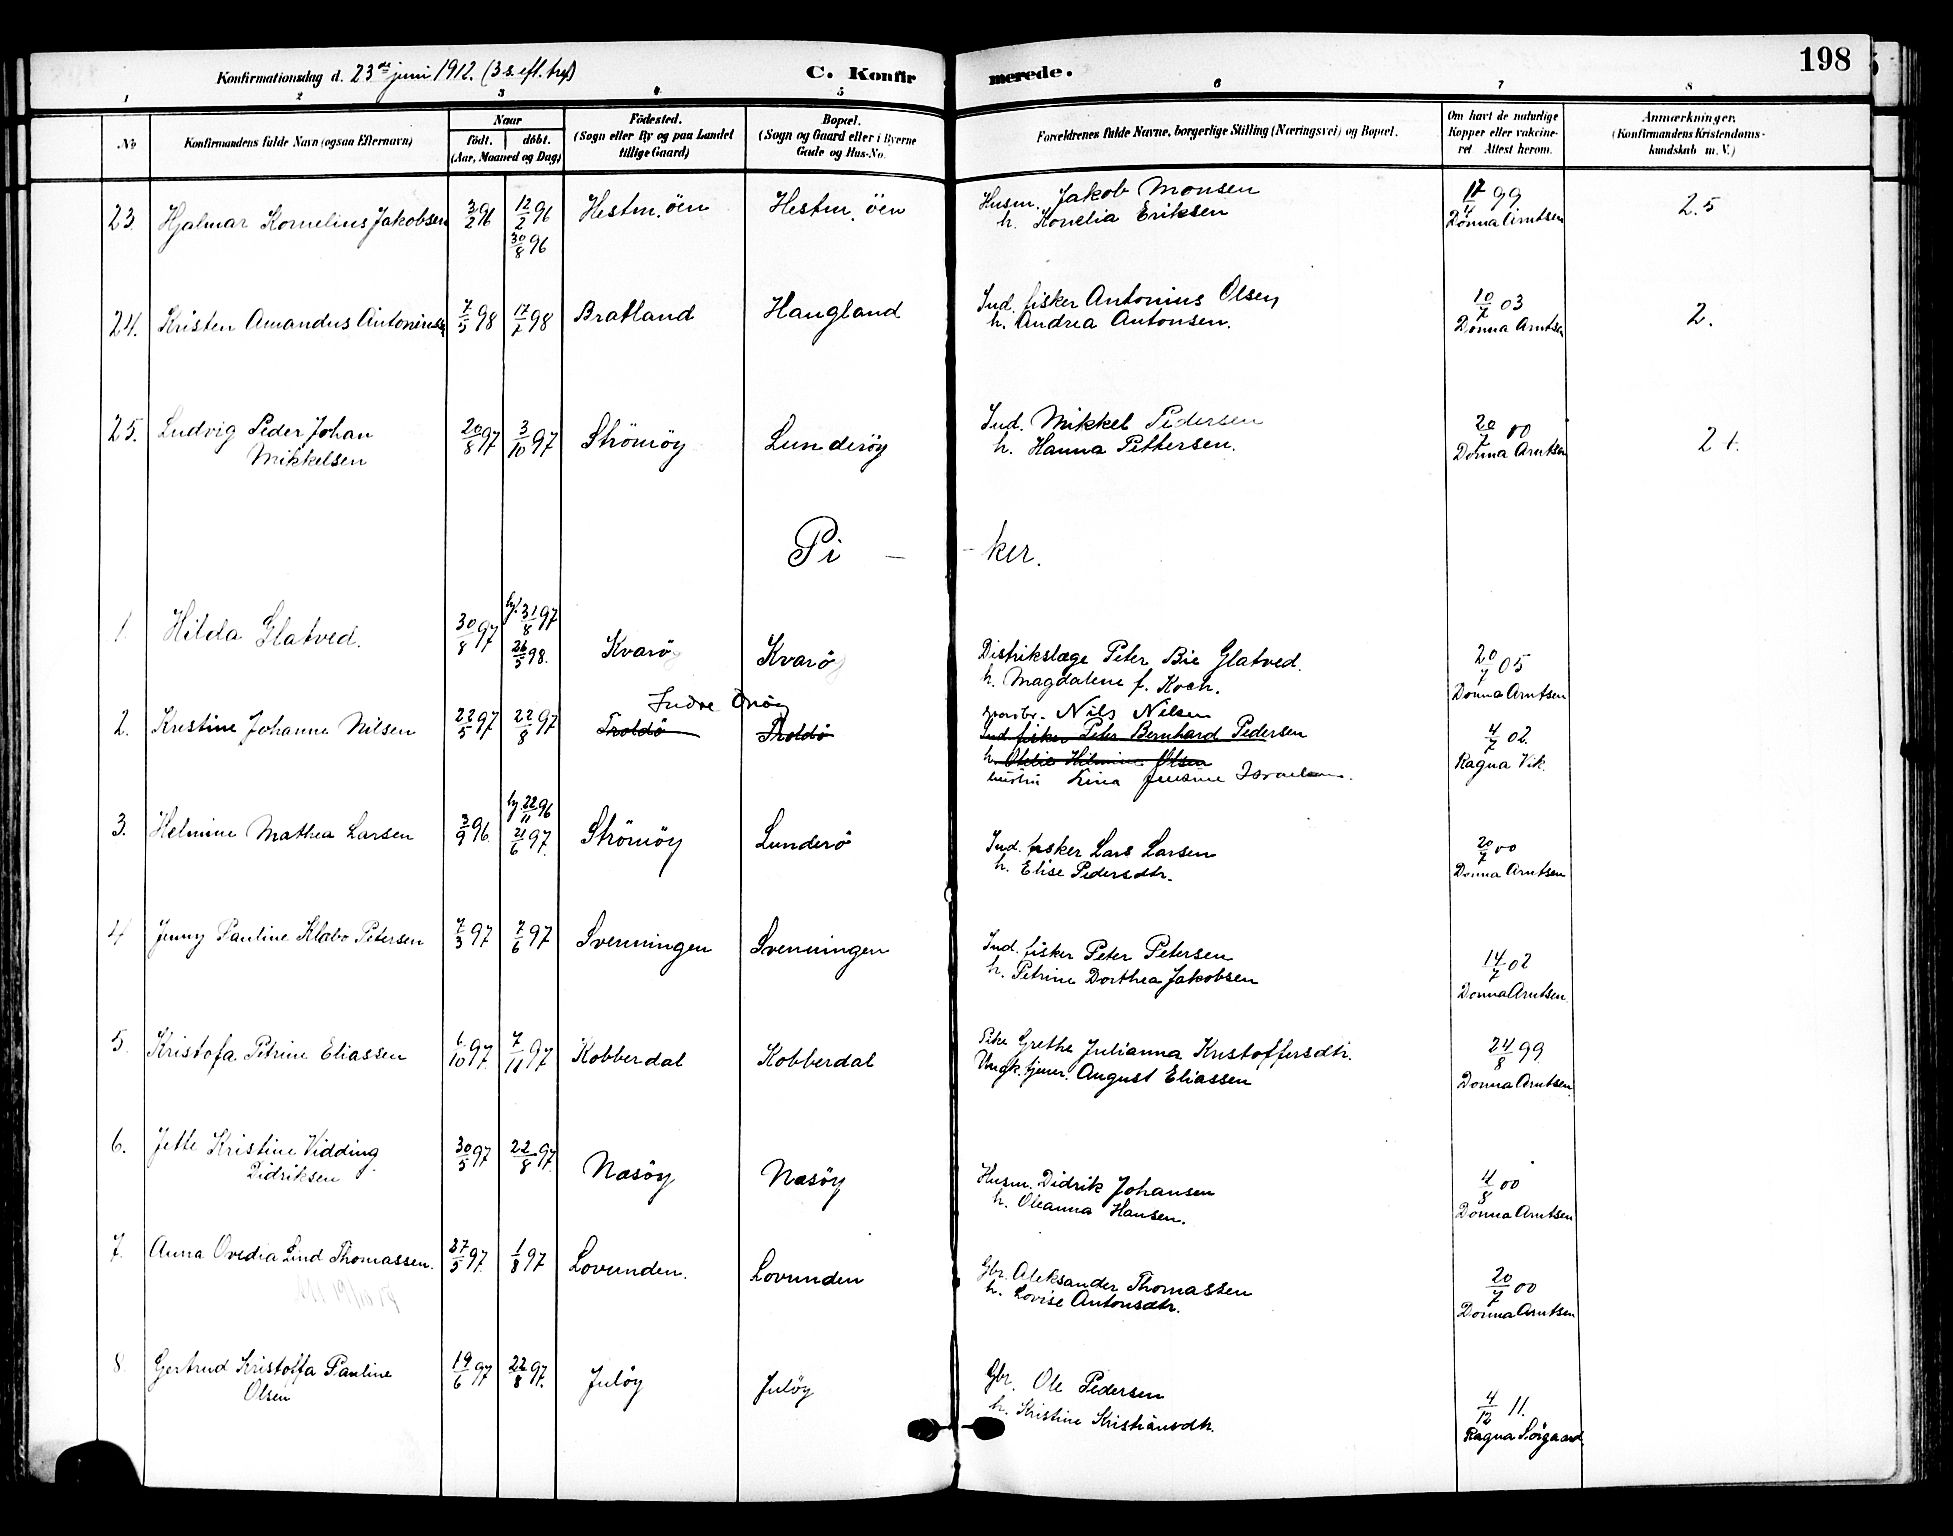 198
Konfirmationsdag d. 23de juni 1912. (3 s. eft. tref)
C. Konfirmerede.
1 2 3 4 5 6 7 8
No Konfirmandens fulde Navn (ogsaa Efternavn) Naar födt. döbt. (Aar, Maaned og Dag) Födested. (Sogn eller By og paa Landet tillige Gaard) Bopæl. (Sogn og Gaard eller i Byerne Gade og Hus-No. Forældrenes fulde Navne, borgerlige Stilling (Næringsvei) og Bopæl. Om havt de naturlige Kopper eller vaccineret Attest herom. Anmærkninger. (Konfirmandens Kristendomskundskab m. V.)
23. Hjalmar Kornelius Jakobsen 3/2 96 12/2 96 30/8 96 Hestm.öen Hestm.öen Husm. Jakob Monsen
h. Konelia Eriksen 99 Donna Arntsen 2.5
24. Kristen Amandus Antoniussen 7/5 98 98 Bratland Haugland Ind. fisker Antonius Olsen
h. Andrea Antonsen. 10/7 03 Donna Arntsen 2.
25. Ludvig Peder Johan
Mikkelsen 20/8 97 3/10 97 Strömöy Lunderöy Ind. Mikkel Pedersen
h. Hanna Pettersen. 20/7 00 Donna Arntsen
Pi - - ker.
1. Hilda Glatved. 30/8 97 hj. 31/8 97 26/5 98. Kvarö Kvarö Distrikslæge Peter Bie Glatved.
h. Magdalene f. Koch. 20/7 05 Donna Arntsen
2. Kristine Johanne Nilsen 22/5 97 22/8 97 Indre Troldö Troldö Nils Nilsen
Ind. fisker Peter Bernhard Pedersen
h. Olsen
hustru 4/7 02. Ragna Vik.
3. Helmine Mathea Larsen 3/9 96. hj. 22/11 96 21/6 97. Strömöy Lunderö Ind. fisker Lars Larsen
h. Elise Pedersdtr. 20/7 00 Donna Arntsen
4 Jenny Pauline Klabo Petersen 7/3 97 7/6 97 Svenningen Svenningen Ind. fisker Peter Petersen
h. Petrine Dorthea Jakobsen 14/7 02 Donna Arntsen
5. Kristofa Petrine Eliassen 6/10 97. 7/11 97 Kobberdal Kobberdal Pike Grethe Julianna Kristoffersdtr.
Ungk. tjener. August Eliassen 24/8 99 Donna Arntsen
6. Jette Kristine Vidding
Didriksen 30/5 97 22/8 97. Nesöy Nesöy Husm. Didrik Johansen
h. Oleanna Hansen. 4/8 00 Donna Arntsen
7. Anna Ovedia Lind Thomassen. 27/5 97. 1/8 97 Lovunden. Lovunden Gbr. Aleksander Thomassen
h. Lovise Antonsdtr. 20/7 00 Donna Arntsen
8 Gjertrud Kristoffa Pauline
Olsen 19/6 97 22/8 97. Julöy Julöy Gbr. Ole Pedersen
h. Kristine Kristiansdtr. 4/12 11. Ragna Sörgaard